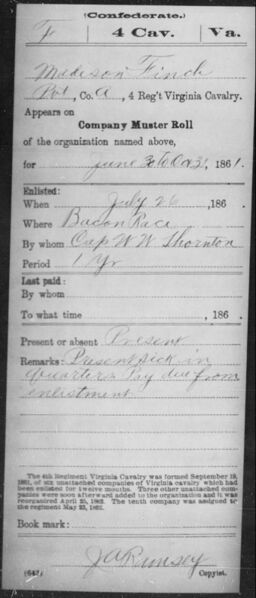 (Confederate.)
F 4 Cav. Va.
Madison Finch
Pvt, Co. A, 4 Reg't Virginia Cavalry.
Appears on
Company Muster Roll
of the organization named above,
for June 30 to Oct 31, 1861.
Enlisted:
When July 26, 186 .
Where Bacon Race
By whom Cap W W Thornton
Period 1 Yr
Last paid:
By whom
To what time , 186 .
Present or absent Present
Remarks: Present sick in
quarters Pay due from
enlistment
The 4th Regiment Virginia Cavalry was formed September 19,
1861, of six unattached companies of Virginia cavalry which had
been enlisted for twelve months. Three other unattached com-
panies were soon afterward added to the organization and it was
reorganized April 25, 1862. The tenth company was assigned to
the regiment May 23, 1862.
Book mark:
J A Rumsey
(642) Copyist.